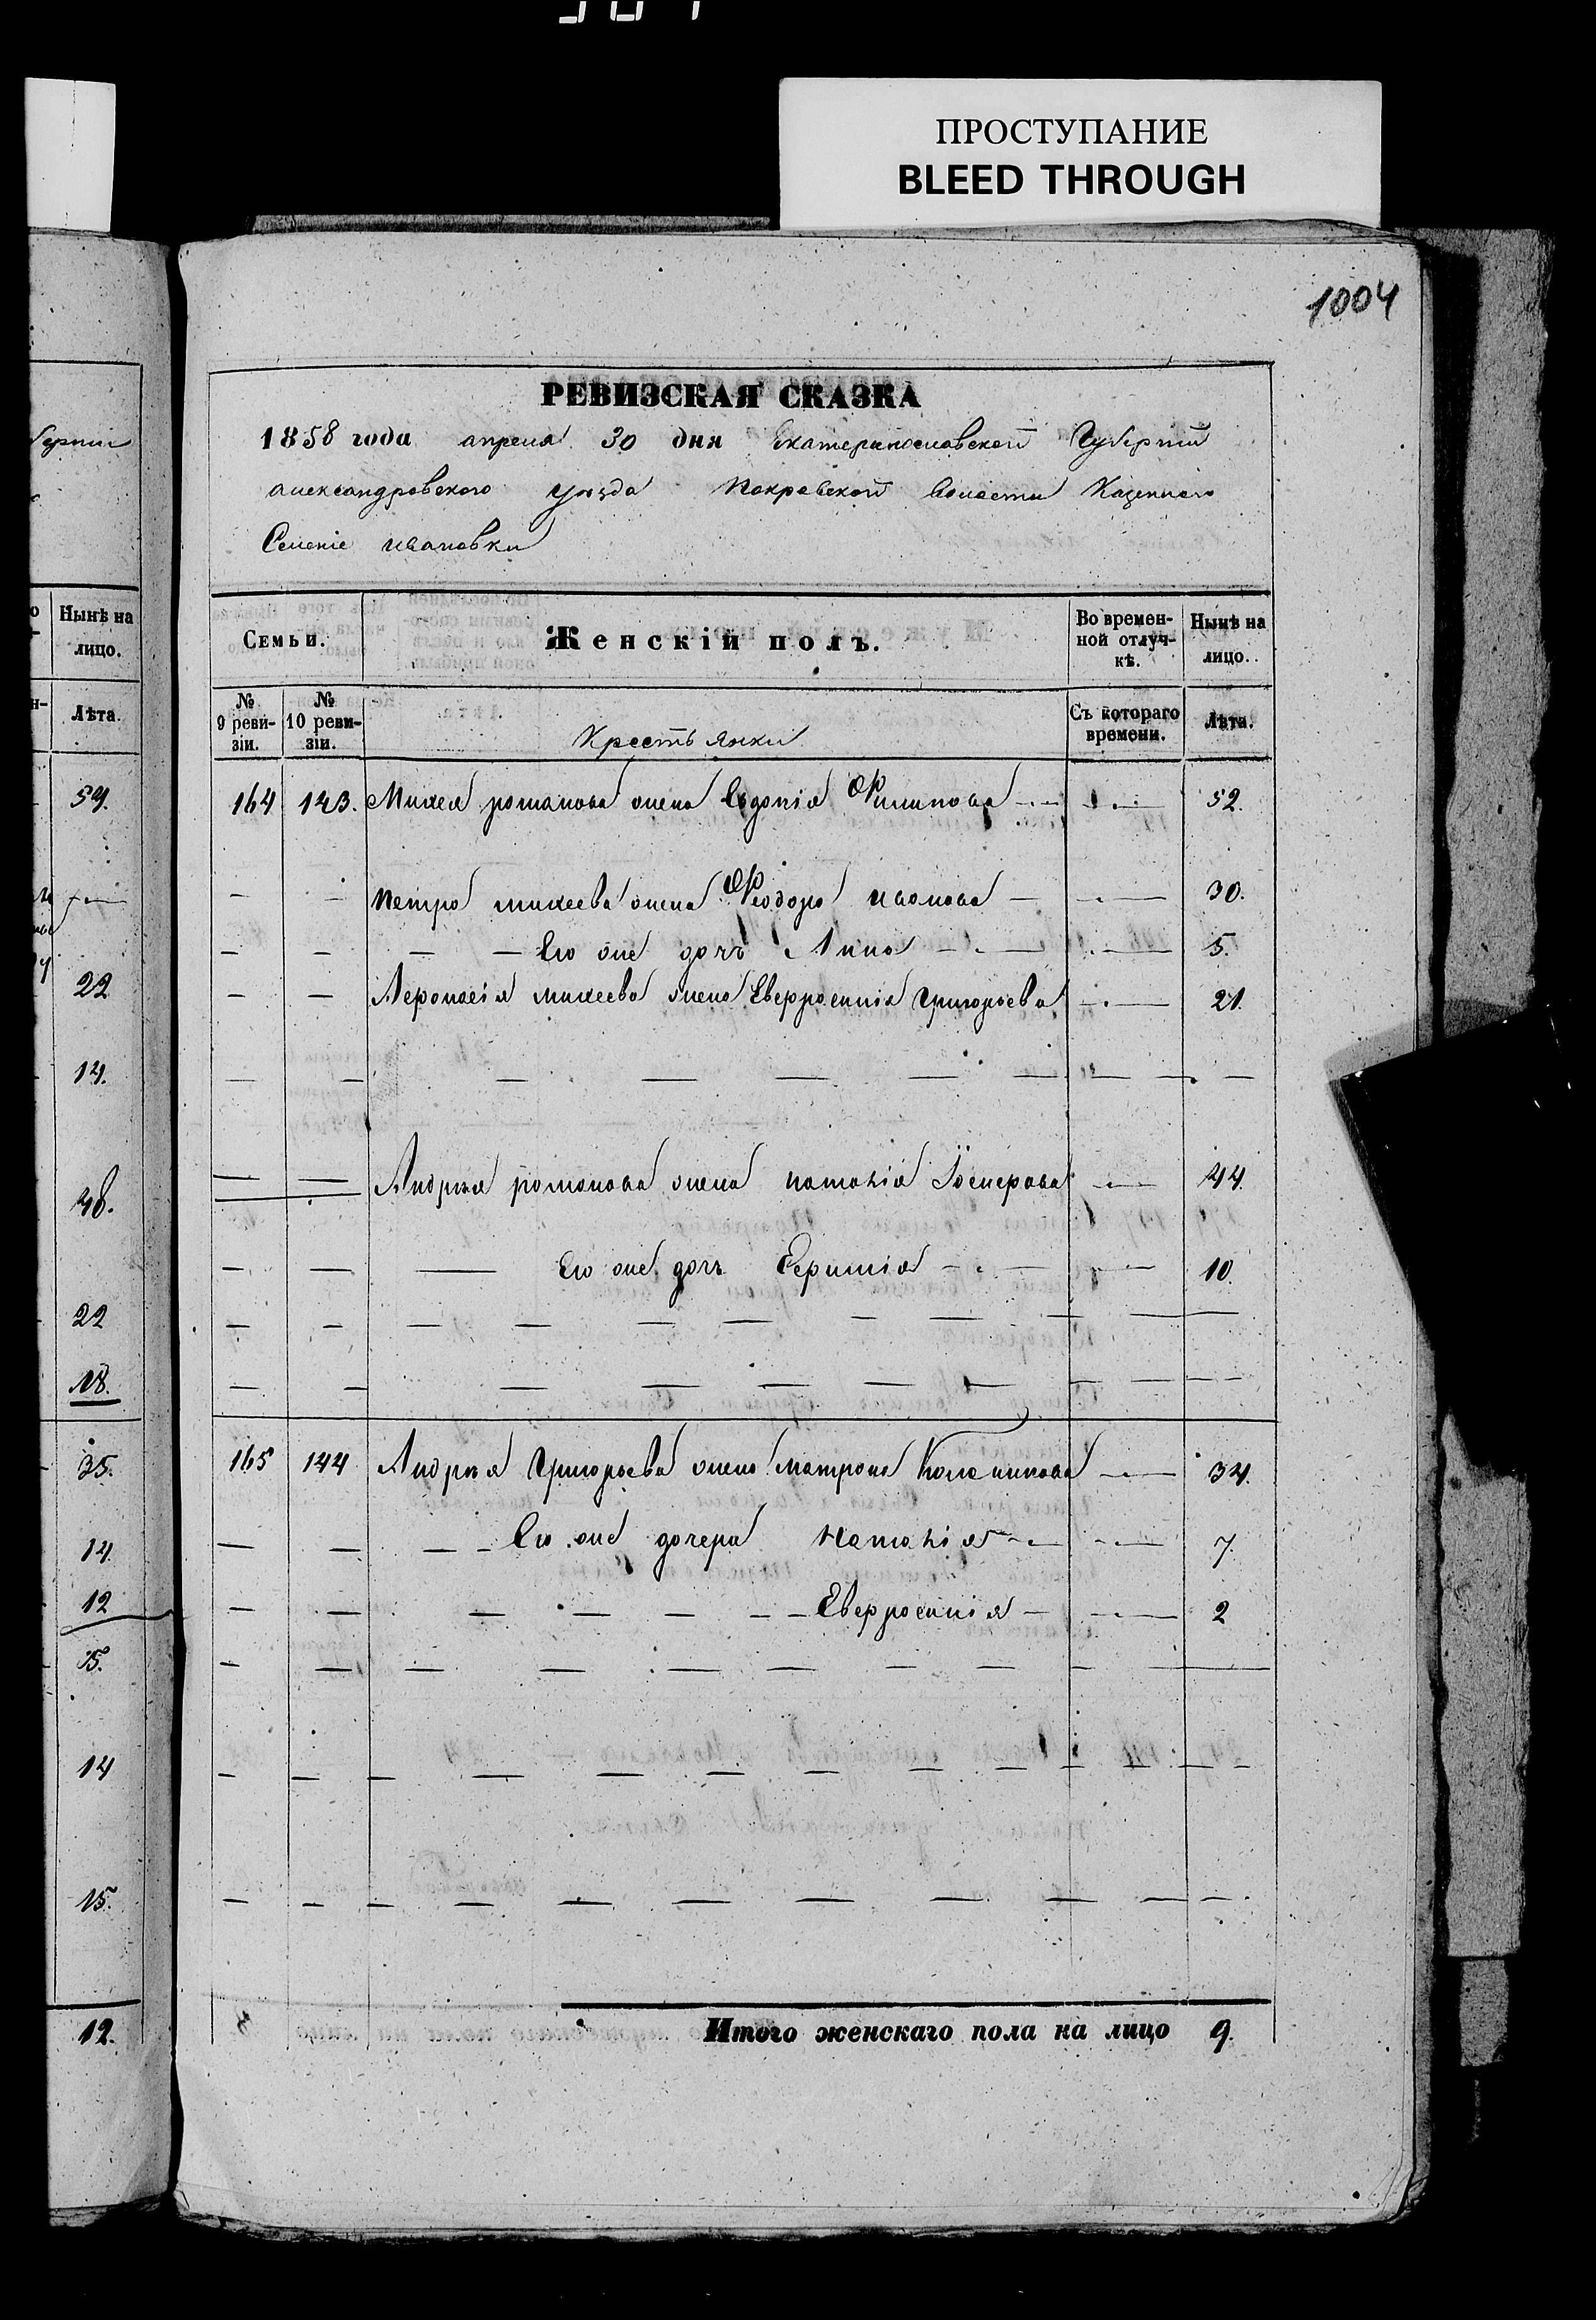 ПРОСТУПАНИЕ
BLEED THROUGH
1004
РЕВИЗСКАЯ СКАЗКА
1858 года апреля 30 дня Екатеринославской Губернии
александровского уѣзда Покровской Волости Казенного
Селеніе ивановки
Семьи. Женскій полъ. Во времен-ной отлуч-кѣ. Нынѣ на лицо.
№ 9 реви-зіи. № 10 реви-зіи. Крестьянки Съ котораго времени. Лѣта.
164 143. Михея романова жена Евдокія Филипова 52.
Петра михеева жена Феодора иванова 30.
Его же дочь Анна 5.
Афонасія михеева жена Евфросинія Григорьева 21.
Андрѣя романова жена наталія 44.
Его же дочь 10.
165 144 Андрѣя Григорьева жена матрона 34.
Его же дочери Наталія 7.
Евфросинія 2
Итого женскаго пола на лицо 9.
берніи
Нынѣ на
лицо.
Лѣта.
54.
22
14.
48.
22
18.
35.
14.
12
15.
14
15.
12.